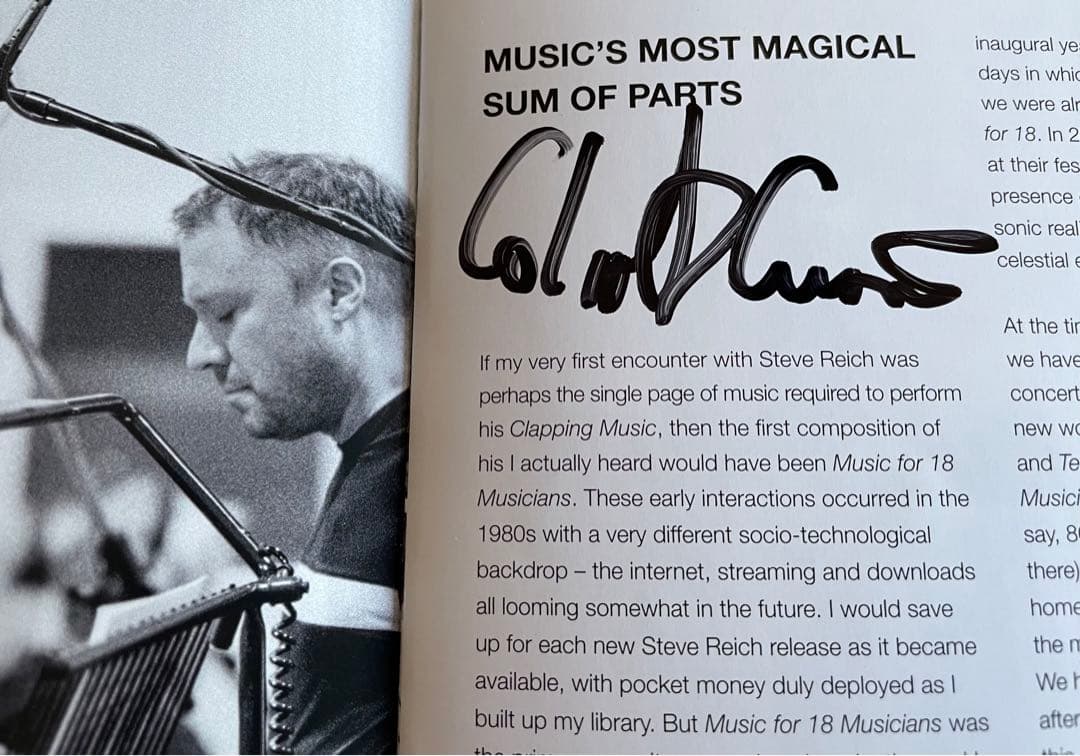 MUSIC'S MOST MAGICAL
SUM OF PARTS
Colin Currie
If my very first encounter with Steve Reich was
perhaps the single page of music required to perform
his Clapping Music, then the first composition of
his I actually heard would have been Music for 18
Musicians. These early interactions occurred in the
1980s with a very different socio-technological
backdrop – the internet, streaming and downloads
all looming somewhat in the future. I would save
up for each new Steve Reich release as it became
available, with pocket money duly deployed as I
built up my library. But Music for 18 Musicians was
inaugural ye
days in whic
we were alr
for 18. In 2
at their fes
presence
sonic real
celestial e
At the tim
we have
concert
new wo
and Te
Musici
say, 80
there)
home
the m
We h
after